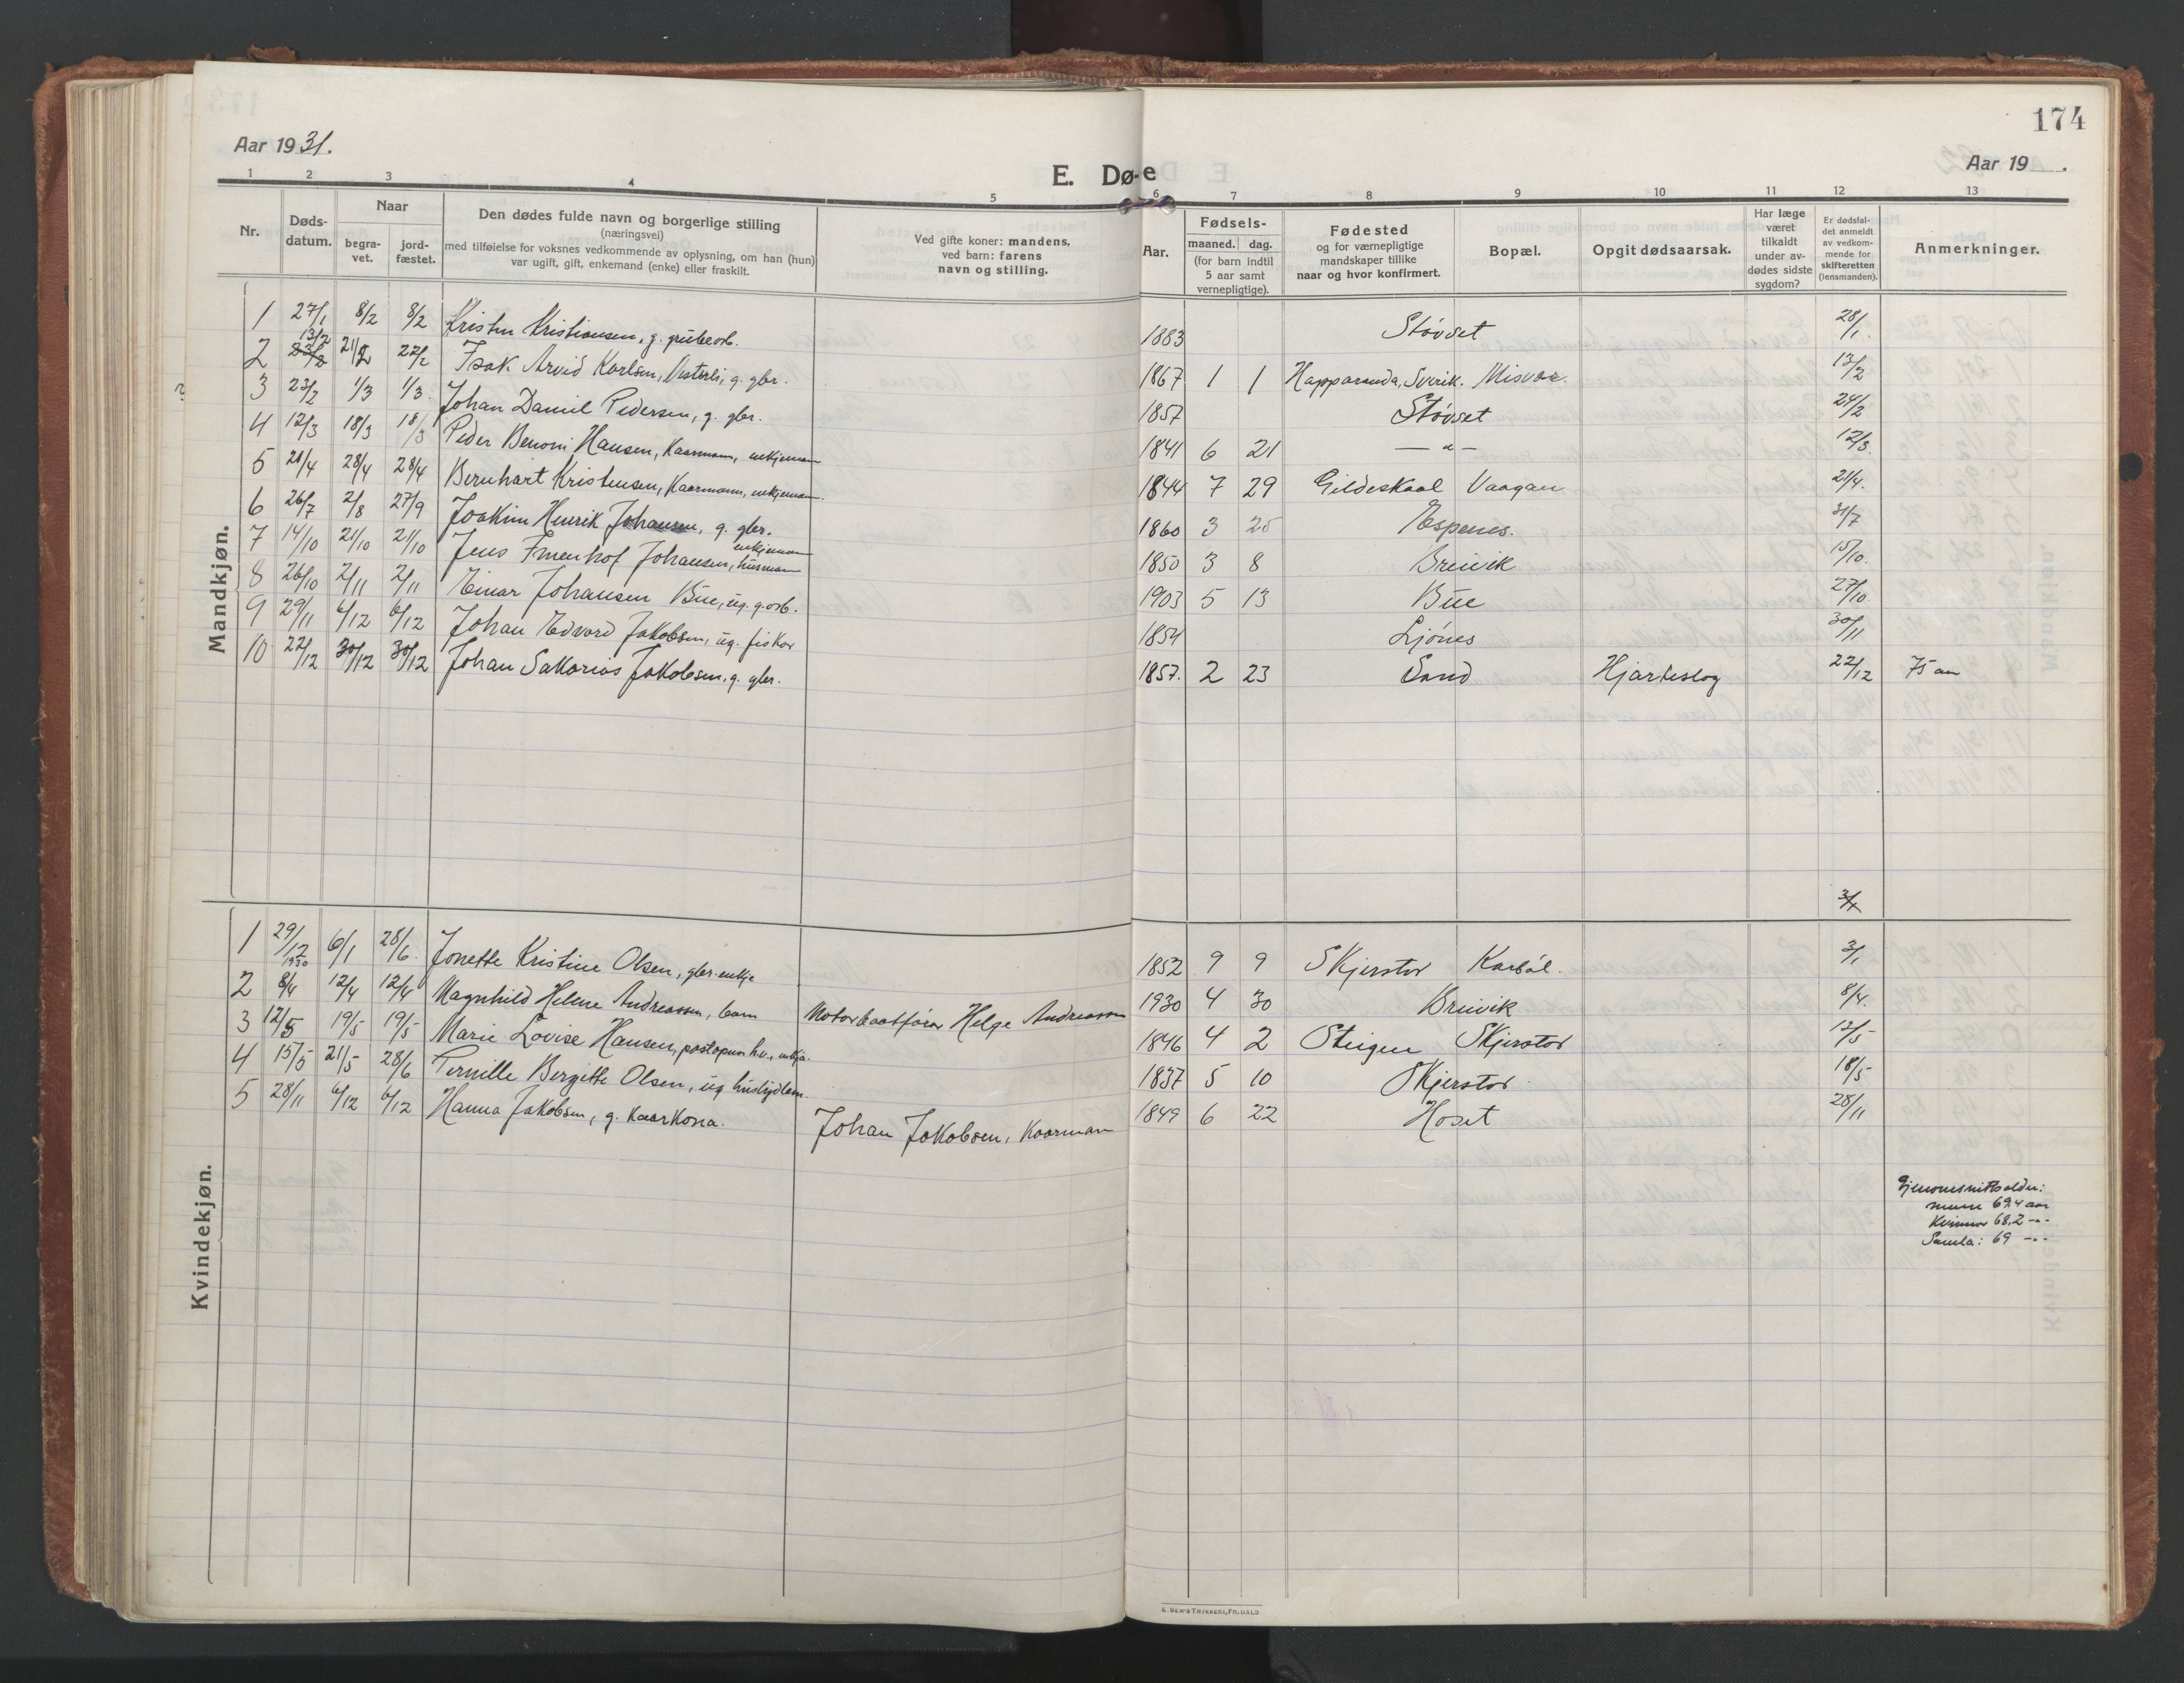 174
Aar 1931.
E. Dø-e
Aar 19 .
1 2 3 4 5 6 7 8 9 10 11 12 13
Nr.
Døds-
datum.
Naar
begra-
vet.
jord-
fæstet.
Den dødes fulde navn og borgerlige stilling
(næringsvei)
med tilføielse for voksnes vedkommende av oplysning, om han (hun)
var ugift, gift, enkemand (enke) eller fraskilt.
Ved gifte koner: mandens,
ved barn: farens
navn og stilling.
Aar.
Fødsels-
maaned. dag.
(for barn indtil
5 aar samt
vernepligtige).
Fødested
og for værnepligtige
mandskaper tillike
naar og hvor konfirmert.
Bopæl.
Opgit dødsaarsak.
Har læge
været
tilkaldt
under av-
dødes sidste
sygdom?
Er dødsfal-
det anmeldt
av vedkom-
mende for
skifteretten
(lensmanden).
Anmerkninger.
Mandkjøn.
1 27/1 8/2 8/2 Kristen Kristiansen, g. grubearb. 1883 Støvset 28/1.
13/2
2 23/2 21/2 22/2 Isak Arvid Karlsen, Vesterli, g. gbr. 1867 1 1 Happaranda, Sverik. Misvær. 13/2
? 3 23/2 1/3 1/3. Johan Daniel Pedersen, g. gbr. 1857 Støvset 24/2
4 12/3 18/3 18/3 Peder Benoni Hansen, Kaarmann, enkjeman 1841 6 21 — " — 12/3.
5 20/4 28/4 28/4 Bernhart Kristensen, Kaarmann, enkjeman. 1844 7 29 Gildeskaal Vaagan 21/4.
6 26/7 2/8 27/9 Joakim Henrik Johansen, g. gbr. 1860 3 25 Espenes. 31/7
enkjeman
7 14/10 21/10 21/10 Jens Imenhof Johansen, husman 1850 3 8 Breivik 15/10.
8 26/10 2/11 2/11 Einar Johansen Bue, ug. g.arb. 1903 5 13 Bue 27/10.
9 29/11 6/12 6/12 Johan Edvard Jakobsen, ug. fiskar 1854 Ljønes 30/11
10 22/12 30/12 30/12 Johan Sakarias Jakobsen, g. gbr. 1857. 2 23 Sand Hjarteslag 22/12 75 aar
3/1
Kvindekjøn.
1 29/12 1930 6/1 28/6. Jonette Kristine Olsen, gbr. enkje 1852 9 9 Skjerstor Karbøl. 3/1
2 8/4 12/4 12/4 Magnhild Helene Andreassen, barn Motorbaatførar Helge Andreassen 1930 4 30 Breivik 8/4.
3 12/5 19/5 19/5 Marie Lovise Hansen, postopnar h.v., enkja. 1846 4 2 Steigen Skjerstor 12/5
4 15/5 21/5 28/6 Pernille Bergitte Olsen, ug huslydlem. 1837 5 10 Skjerstor 18/5
5 28/11 6/12 6/12 Hanna Jakobsen, g. kaarkona. Johan Jakobsen, Kaarman 1849 6 22 Hoset 28/11
Gjenomsnittsalder:
menn 69.4 aar
Kvinnor 68.2 -"-
Samla: 69 -"-
E. SEM'S TRYKKERI, FR.HALD